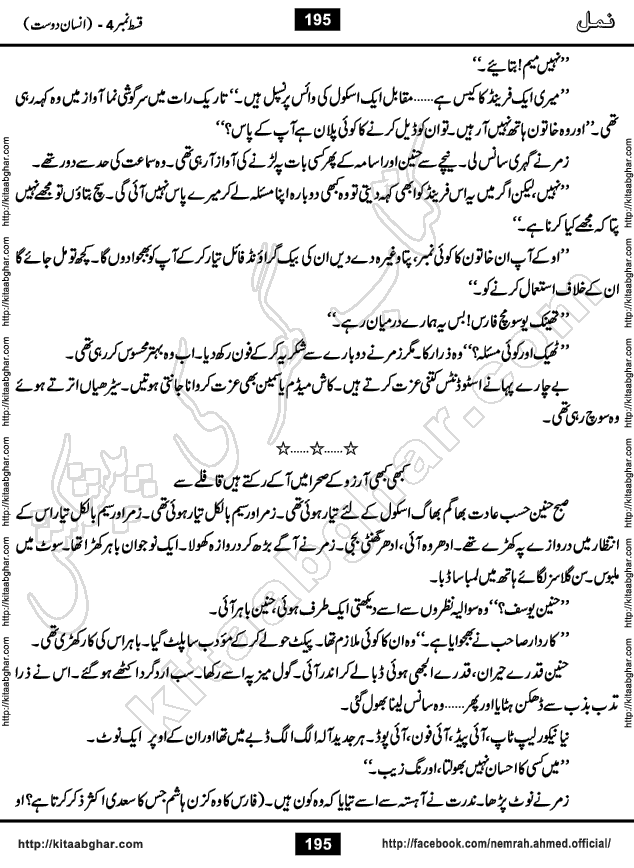 نمل
195
قسط نمبر 4 - (انسان دوست)
’’نہیں میم! بتائیے۔‘‘
’’میری ایک فرینڈ کا کیس ہے......مقابل ایک اسکول کی وائس پرنسپل ہیں۔‘‘ تاریک رات میں سرگوشی نما آواز میں وہ کہہ رہی
تھی۔ ’’اور وہ خاتون ہاتھ نہیں آ رہیں۔ تو ان کو ڈیل کرنے کا کوئی پلان ہے آپ کے پاس؟‘‘
زمر نے گہری سانس لی۔ نیچے سے حنین اور اسامہ کے پھر کسی بات پہ لڑنے کی آواز آ رہی تھی۔ وہ سماعت کی حد سے دور تھے۔
’’نہیں، لیکن اگر میں یہ اس فرینڈ کو ابھی کہہ دیتی تو وہ کبھی دوبارہ اپنا مسئلہ لے کر میرے پاس نہیں آئی گی۔ سچ بتاؤں تو مجھے نہیں
پتا کہ مجھے کیا کرنا ہے۔‘‘
’’اوکے آپ ان خاتون کا کوئی نمبر، پتا وغیرہ دے دیں ان کی بیک گراؤنڈ فائل تیار کر کے آپ کو بھجوا دوں گا۔ کچھ تو مل جائے گا
ان کے خلاف استعمال کرنے کو۔‘‘
’’تھینک یو سو مچ فارس! بس یہ ہمارے درمیان رہے۔‘‘
’’ٹھیک اور کوئی مسئلہ؟‘‘ وہ ذرا رکا۔ مگر زمر نے دوبارے سے شکریہ کر کے فون رکھ دیا۔ اب وہ بہتر محسوس کر رہی تھی۔
بے چارے پہانے اسٹوڈنٹس کتنی عزت کرتے ہیں۔ کاش میڈم یاسمین بھی عزت کروانا جانتی ہوتیں۔ سیڑھیاں اترتے ہوئے
وہ سوچ رہی تھی۔
☆......☆......☆
کبھی کبھی آرزو کے صحرا میں آ کے رکتے ہیں قافلے سے
صبح حنین حسب عادت بھاگم بھاگ اسکول کے لئے تیار ہوئی تھی۔ زمر اور سیم بالکل تیار ہوئی تھی۔ زمر اور سیم بالکل تیار اس کے
انتظار میں دروازے پہ کھڑے تھے۔ ادھر وہ آئی، ادھر گھنٹی بجی۔ زمر نے آگے بڑھ کر دروازہ کھولا۔ ایک نوجوان باہر کھڑا تھا۔ سوٹ میں
ملبوس۔ سن گلاسز لگائے ہاتھ میں لمبا سا ڈبا۔
’’حنین یوسف؟‘‘ وہ سوالیہ نظروں سے اسے دیکھتی ایک طرف ہوئی، حنین باہر آئی۔
’’کاردار صاحب نے بھجوایا ہے۔‘‘ وہ ان کا کوئی ملازم تھا۔ پیکٹ حوالے کر کے مؤدب سا پلٹ گیا۔ باہر اس کی کار کھڑی تھی۔
حنین قدرے حیران، قدرے الجھی ہوئی ڈبا لے کر اندر آئی۔ گول میز پہ اسے رکھا۔ سب ارد گرد اکٹھے ہو گئے۔ اس نے ذرا
تذبذب سے ڈھکن ہٹایا اور پھر......وہ سانس لینا بھول گئی۔
نیا نیکور لیپ ٹاپ، آئی پیڈ، آئی فون، آئی پوڈ۔ ہر جدید آلہ الگ الگ ڈبے میں تھا اور ان کے اوپر ایک نوٹ۔
’’میں کسی کا احسان نہیں بھولتا، اورنگ زیب۔‘‘
زمر نے نوٹ پڑھا۔ ندرت نے آہستہ سے اسے بتایا کہ وہ کون ہیں۔ (فارس کا وہ کزن ہاشم جس کا سعدی اکثر ذکر کرتا ہے؟ او
http://kitaabghar.com
195
http://facebook.com/nemrah.ahmed.official/
http://kitaabghar.com http://kitaabghar.com http://kitaabghar.com http://kitaabghar.com http://kitaabghar.com http://kitaabghar.com
http://kitaabghar.com http://kitaabghar.com http://kitaabghar.com http://kitaabghar.com http://kitaabghar.com http://kitaabghar.com
کتاب گھر کی پیشکش
kitaabghar.com